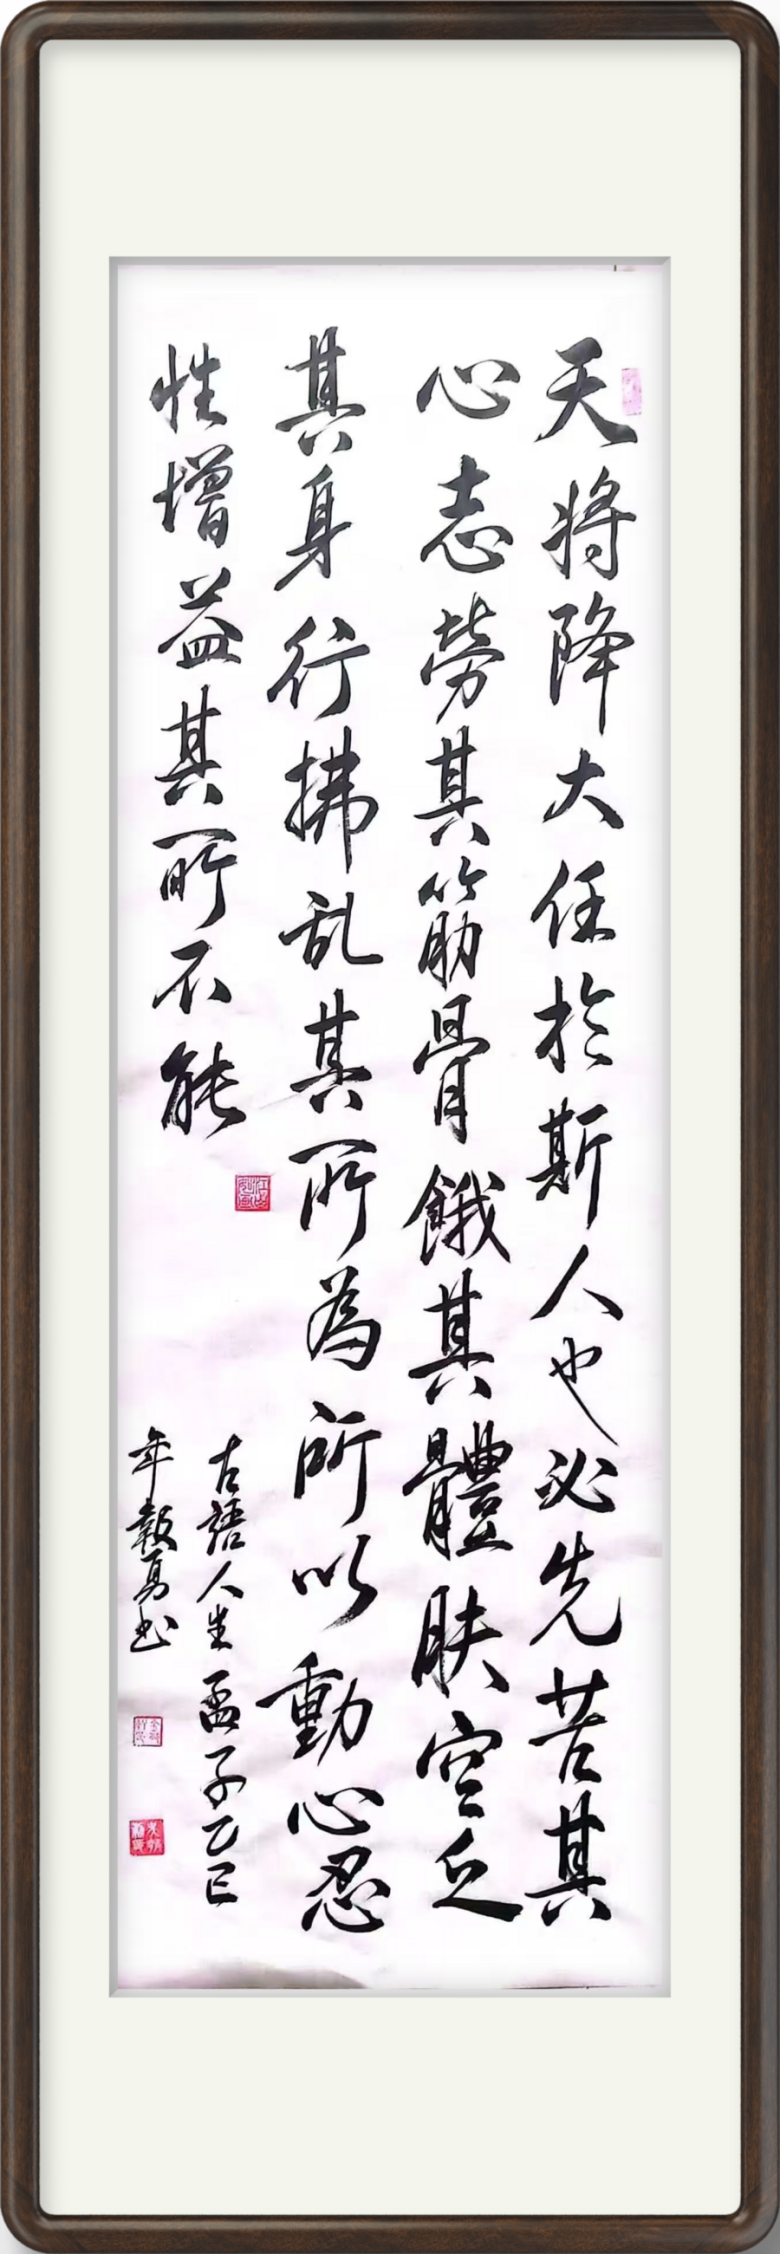 天将降大任於斯人也必先苦其
心志勞其筋骨餓其體肤空乏
其身行拂乱其所為所以動心忍
性增益其所不能
古語人生孟子乙巳
年毅勇书